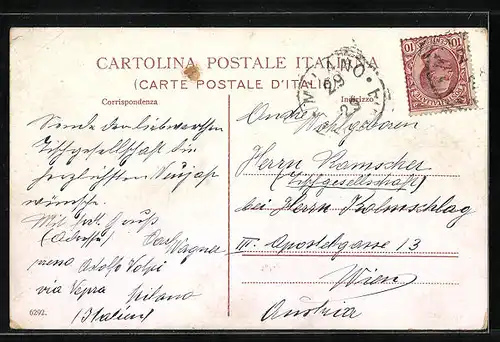 CARTOLINA POSTALE ITALIANA
(CARTE POSTALE D'ITALIE)
Corrispondenza
Indirizzo
MILANO
29
10 10
Sende der liebwerthen
Tischgesellschaft die
herzlichsten Neujahrs
wünsche.
Mit Gruß
(Adresse) Carl Wagner
Adolfo Volpi
via Vepra Milano
(Italien)
6292.
Wohlgeboren
Herrn Kamscher
(Tischgesellschaft)
bei Herrn Kolmschlag
III. Apostelgasse 13
Wien
Austria